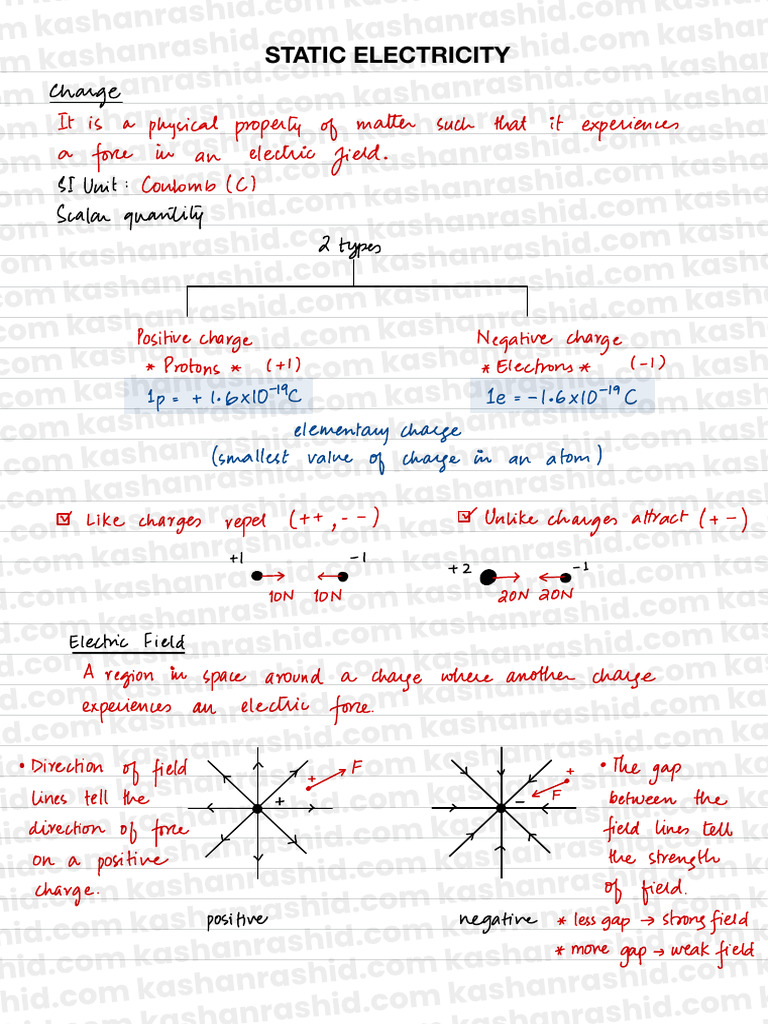 STATIC ELECTRICITY
Charge
It is a physical property of matter such that it experiences
a force in an electric field.
SI Unit: Coulomb (C)
Scalar quantity
2 types
Positive charge
* Protons * (+1)
1p = + 1.6×10⁻¹⁹C
Negative charge
* Electrons * (-1)
1e = -1.6×10⁻¹⁹ C
elementary charge
(smallest value of charge in an atom)
Like charges repel (++, - -)
Unlike charges attract (+ -)
+1 -1
10N 10N
+2 -1
20N 20N
Electric Field
A region in space around a charge where another charge
experiences an electric force.
• Direction of field
lines tell the
direction of force
on a positive
charge.
+ + F
positive
- + F
negative
• The gap
between the
field lines tell
the strength
of field.
* less gap → strong field
* more gap → weak field
kashanrashid.com